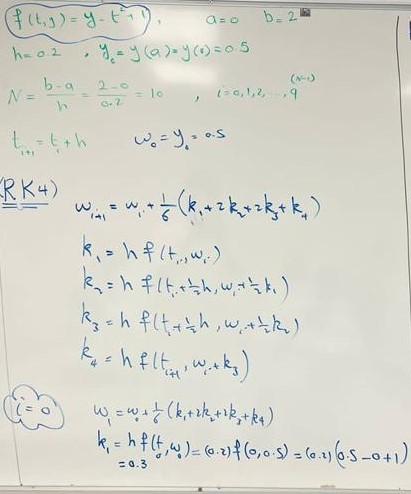 f(t,y) = y - t² + 1, a=0 b=2
h=0.2, y₀ = y(a) = y(0) = 0.5
N = (b-a)/h = (2-0)/0.2 = 10, i=0,1,2,...,9 (N-1)
tᵢ₊₁ = tᵢ + h w₀ = y₀ = 0.5
(RK4)
wᵢ₊₁ = wᵢ + 1/6 (k₁ + 2k₂ + 2k₃ + k₄)
k₁ = h f(tᵢ, wᵢ)
k₂ = h f(tᵢ + ½h, wᵢ + ½k₁)
k₃ = h f(tᵢ + ½h, wᵢ + ½k₂)
k₄ = h f(tᵢ₊₁, wᵢ + k₃)
i=0 w₁ = w₀ + 1/6 (k₁ + 2k₂ + 2k₃ + k₄)
k₁ = h f(t₀, w₀) = (0.2) f(0, 0.5) = (0.2)(0.5 - 0 + 1)
= 0.3